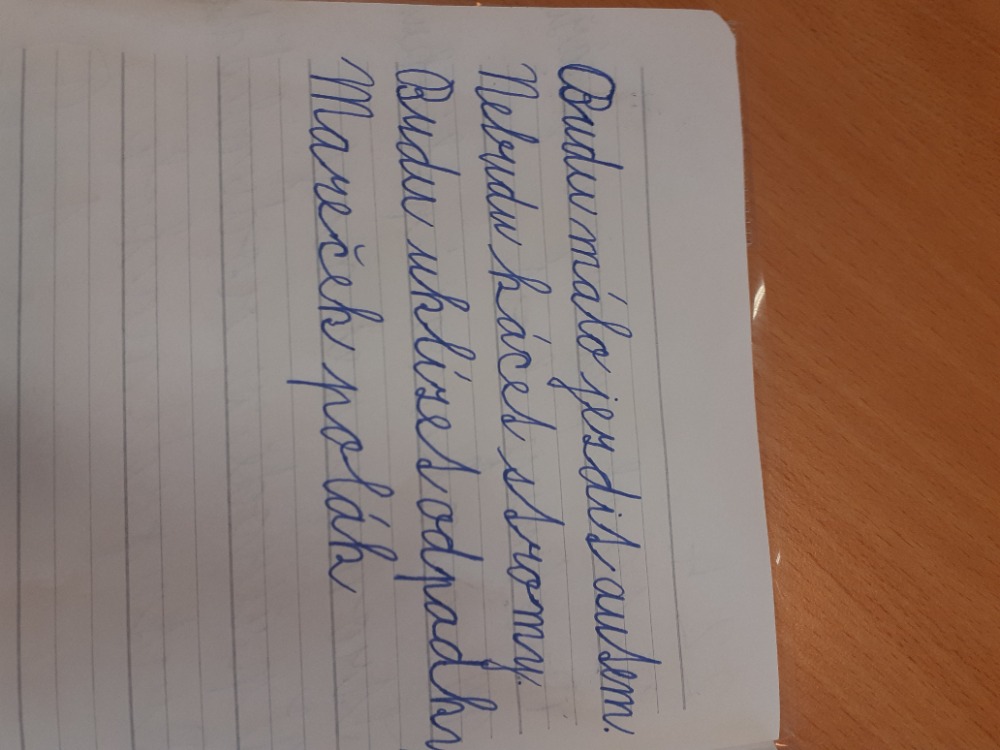 Budu málo jezdit autem.
Nebudu kácet stromy.
Budu uklízet odpadky
Mareček polák